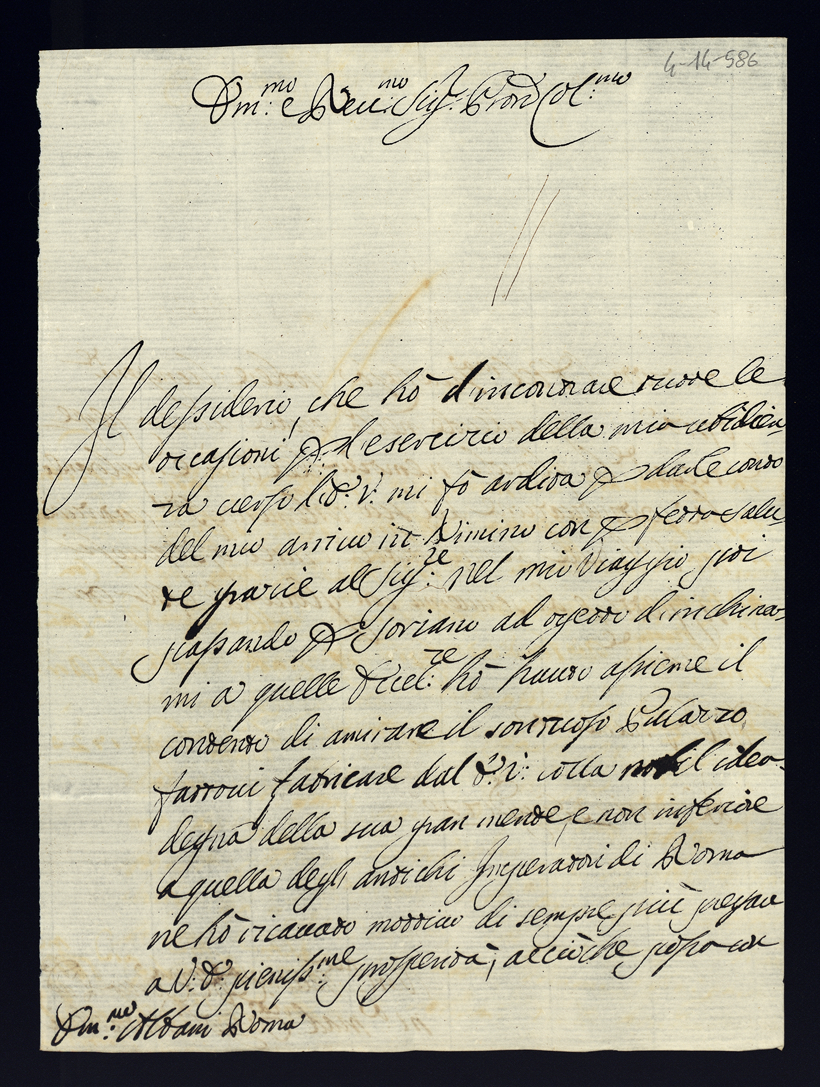 4-14-586
Em:mo e Rev:mo Sig:r Pron Col:mo
Il dessiderio, che hò d'incontrare tutte le
occasioni p l'esercizio della mia ubidien
za verso l'E: V: mi fò ardita p darle conto
del mio arrivo in Rimino con pfetta salu
te grazie al Sig:re Nel mio Viaggio poi
passando p Soriano ad ogetto d'inchinar
mi a quelle Eccel:ze hò hauto assieme il
contento di amirare il sontuoso Palazzo
fattovi fabricare dal E: V: colla nobil idea
degna della sua gran mente, e non inferiore
a quella degli antichi Imperatori di Roma
ne hò ricavato mottivo di sempre più pregar
a V: E: pieniss:me prosperità, acciò che possa con
Em:mo Albani Roma